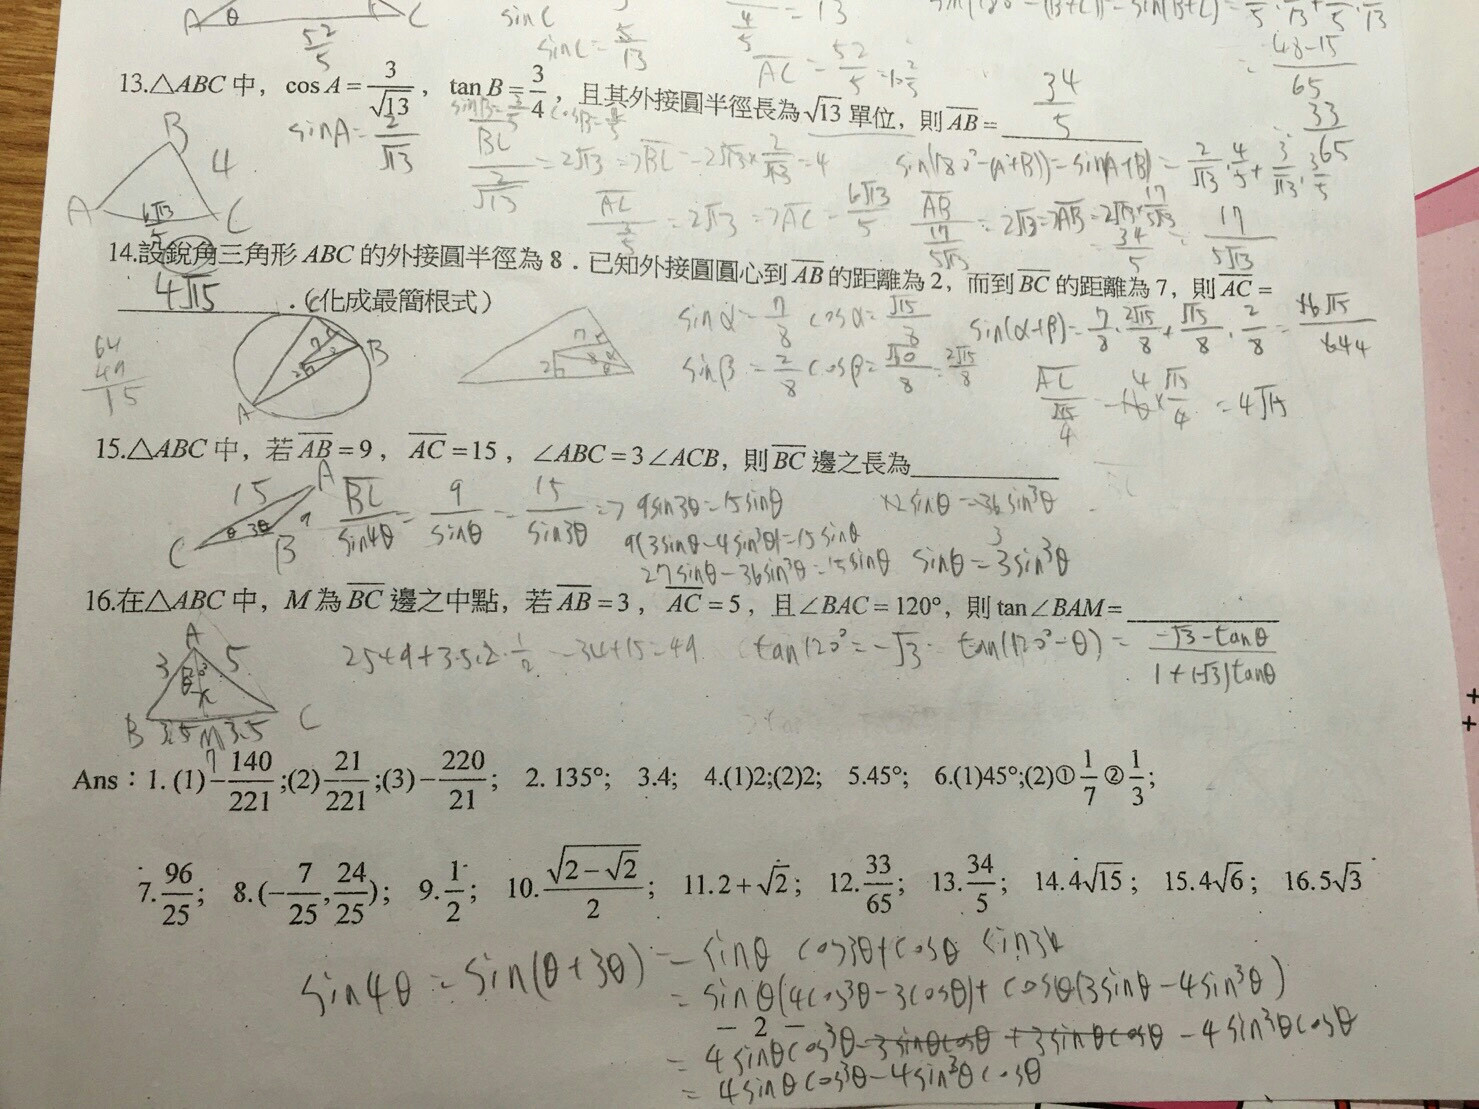 A θ C
52/5
sin C
sin C = 5/13
4/5 = 13
AC = 52/5 =
48-15/65
33/65
13.△ABC 中，cos A = 3/√13，tan B = 3/4，且其外接圓半徑長為 √13 單位，則 AB = 34/5
sin A = 2/√13
sin B = 3/5 cos B = 4/5
B 4 A C 6√13/5
BC/(2/√13) = 2√13 => BC = 2√13 × 2/√13 = 4
sin(180° - (A+B)) = sin(A+B) = 2/√13 · 4/5 + 3/√13 · 3/5
AC/(3/5) = 2√13 => AC = 6√13/5
AB/(17/5√13) = 2√13 => AB = 2√13 × 17/5√13 = 34/5
= 17/5√13
14.設銳角三角形 ABC 的外接圓半徑為 8．已知外接圓圓心到 AB 的距離為 2，而到 BC 的距離為 7，則 AC =
4√15 ．(化成最簡根式)
C B A 7 2
64
49
15
sin α = 7/8 cos α = √15/8
sin(α+β) = 7/8 · 2√15/8 + √15/8 · 2/8 = 16√15/64 4
sin β = 2/8 cos β = √60/8 = 2√15/8
AC/(√15/4) = 16 × √15/4 = 4√15
15.△ABC 中，若 AB = 9，AC = 15，∠ABC = 3∠ACB，則 BC 邊之長為
15 A 9 θ 3θ C B
BC/sin4θ = 9/sinθ = 15/sin3θ => 9sin3θ = 15sinθ
12sinθ = 36sin³θ
9(3sinθ - 4sin³θ) = 15sinθ
27sinθ - 36sin³θ = 15sinθ
sinθ = 3sin³θ
16.在△ABC 中，M 為 BC 邊之中點，若 AB = 3，AC = 5，且∠BAC = 120°，則 tan∠BAM =
A 3 5 θ x B 3.5 M 3.5 C
7
25+9+3·5·2·1/2 = 34+15 = 49
tan120° = -√3
tan(120° - θ) = (-√3 - tanθ)/(1+(-√3)tanθ)
Ans：1.(1)-140/221;(2)21/221;(3)-220/21; 2. 135°; 3.4; 4.(1)2;(2)2; 5.45°; 6.(1)45°;(2)①1/7 ②1/3;
7.96/25; 8.(-7/25,24/25); 9.1/2; 10.√(2-√2)/2; 11.2+√2; 12.33/65; 13.34/5; 14.4√15; 15.4√6; 16.5√3
sin4θ = sin(θ+3θ) = sinθ cos3θ + cosθ sin3θ
= sinθ(4cos³θ - 3cosθ) + cosθ(3sinθ - 4sin³θ)
- 2 -
= 4sinθcos³θ - 3sinθcosθ + 3sinθcosθ - 4sin³θcosθ
= 4sinθcos³θ - 4sin³θcosθ